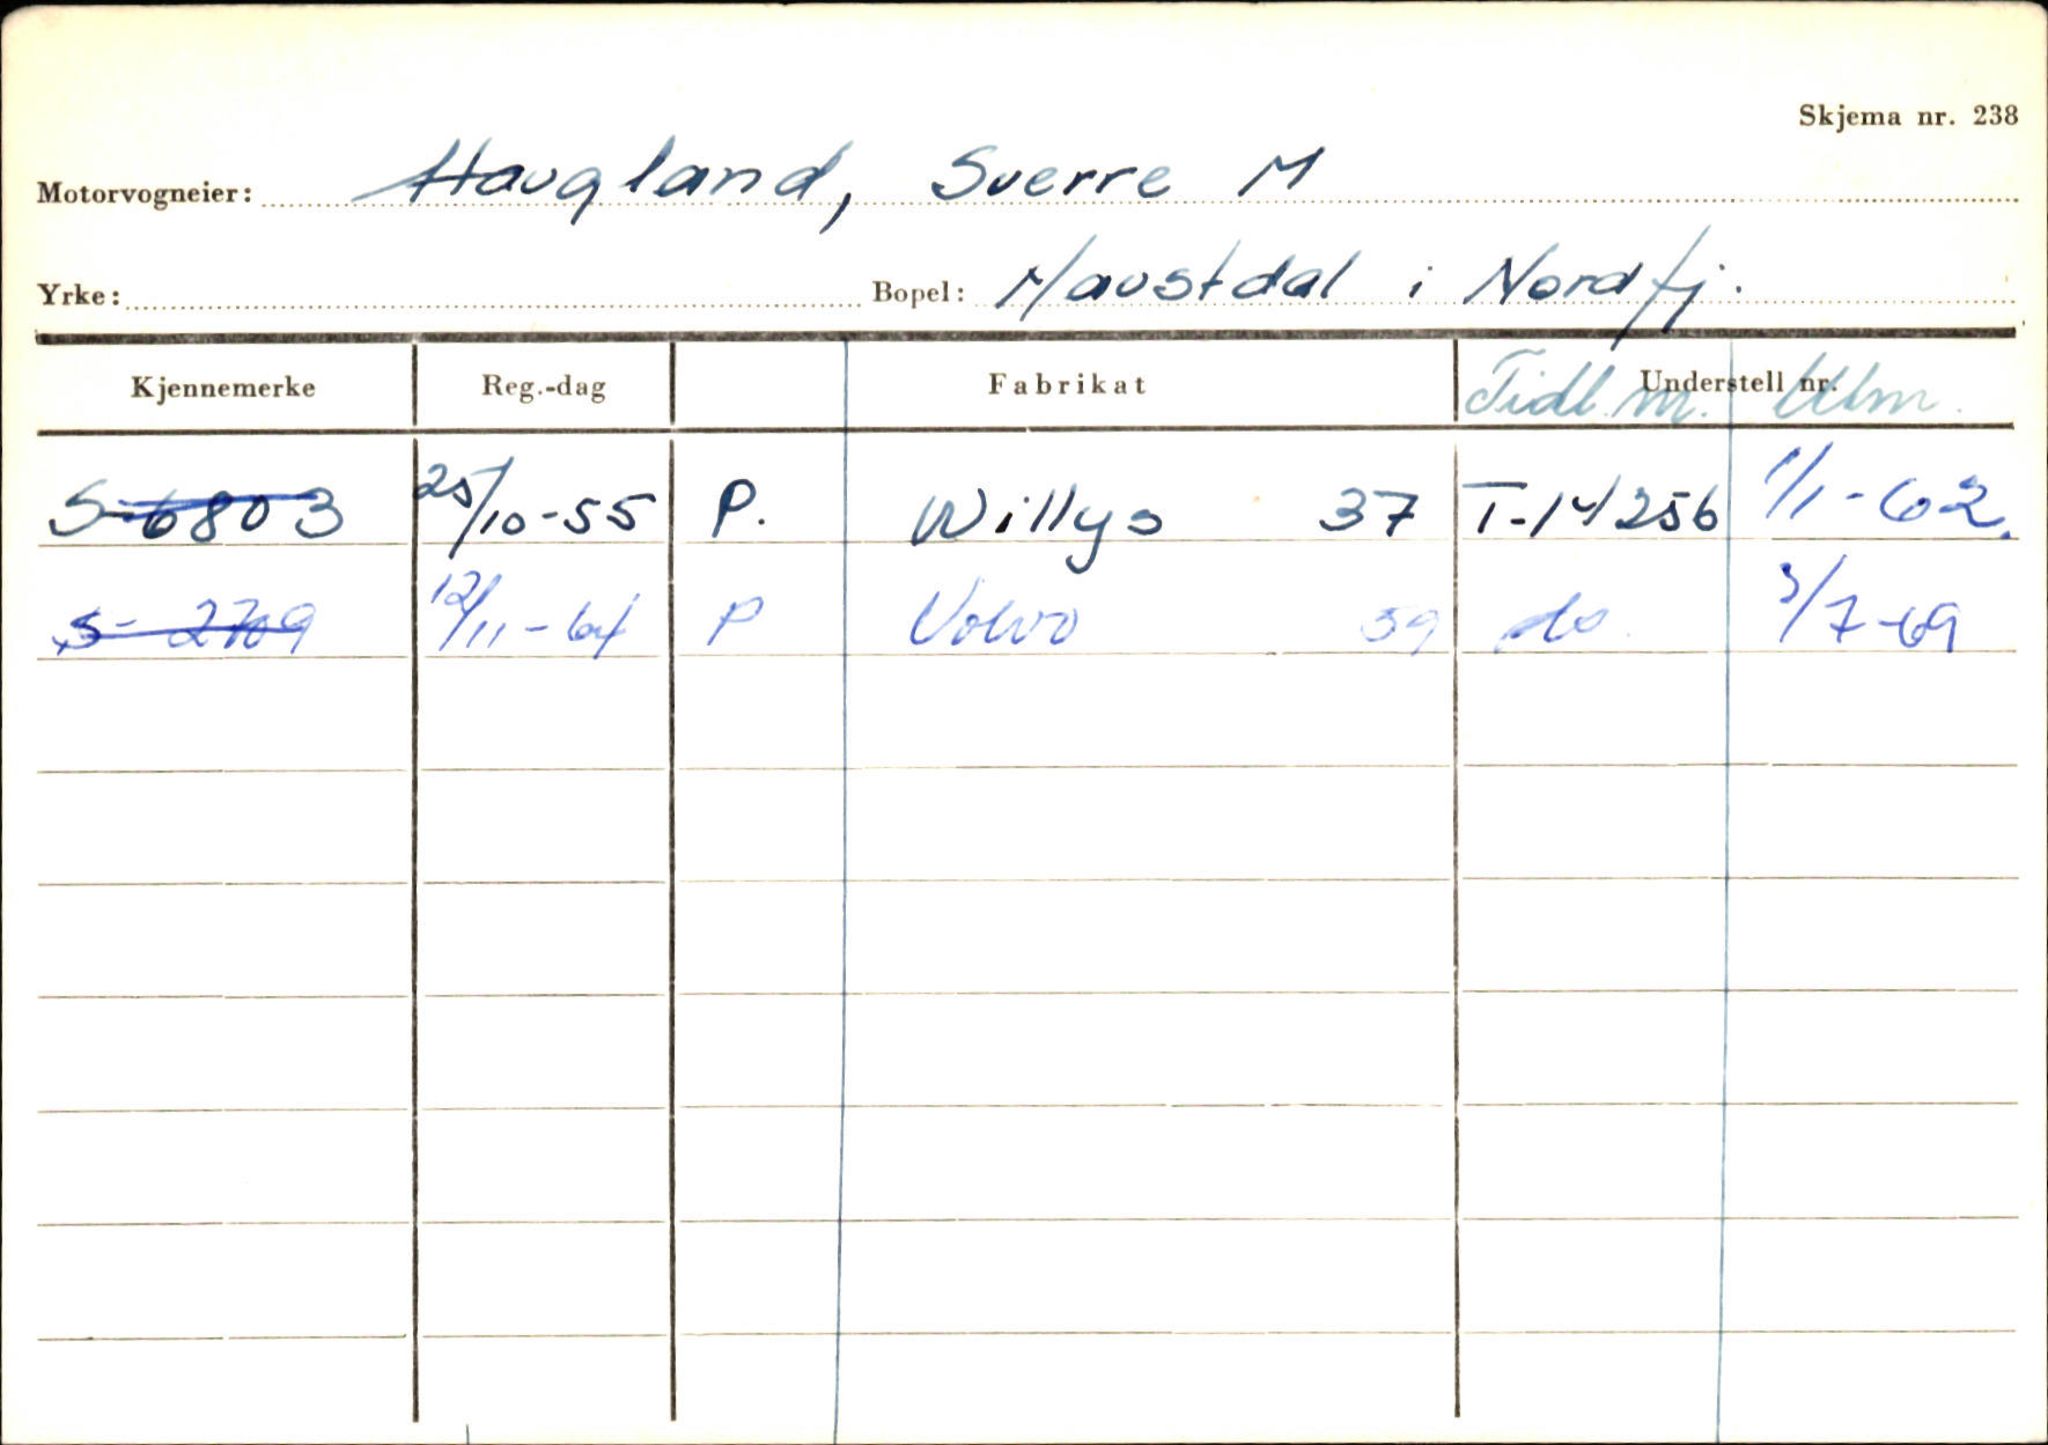 Skjema nr. 238
Motorvogneier: Haugland, Sverre M
Yrke: Bopel: Maustdal i Nordfj.
Kjennemerke Reg.-dag Fabrikat Understell nr. Tidl. m. Ulm.
S-6803 25/10-55 P. Willys 37 T-14256 1/1-62.
S-2709 12/11-64 P Volvo 59 do. 3/7-69